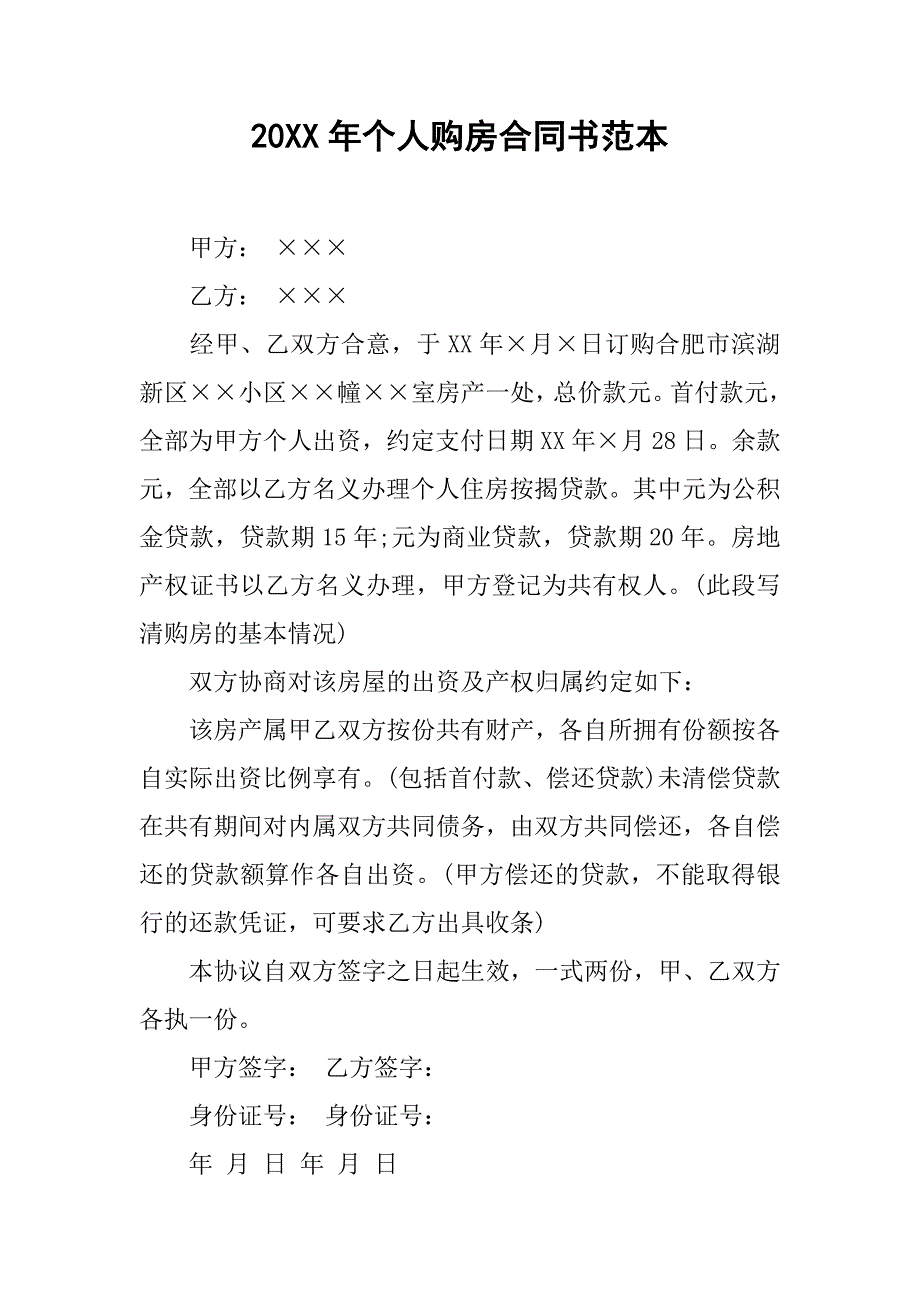 20XX 年个人购房合同书范本
甲方： ×××
乙方： ×××
经甲、乙双方合意，于 XX 年×月×日订购合肥市滨湖
新区××小区××幢××室房产一处，总价款元。首付款元，
全部为甲方个人出资，约定支付日期 XX 年×月 28 日。余款
元，全部以乙方名义办理个人住房按揭贷款。其中元为公积
金贷款，贷款期 15 年;元为商业贷款，贷款期 20 年。房地
产权证书以乙方名义办理，甲方登记为共有权人。(此段写
清购房的基本情况)
双方协商对该房屋的出资及产权归属约定如下：
该房产属甲乙双方按份共有财产，各自所拥有份额按各
自实际出资比例享有。(包括首付款、偿还贷款)未清偿贷款
在共有期间对内属双方共同债务，由双方共同偿还，各自偿
还的贷款额算作各自出资。(甲方偿还的贷款，不能取得银
行的还款凭证，可要求乙方出具收条)
本协议自双方签字之日起生效，一式两份，甲、乙双方
各执一份。
甲方签字： 乙方签字：
身份证号： 身份证号：
年 月 日 年 月 日